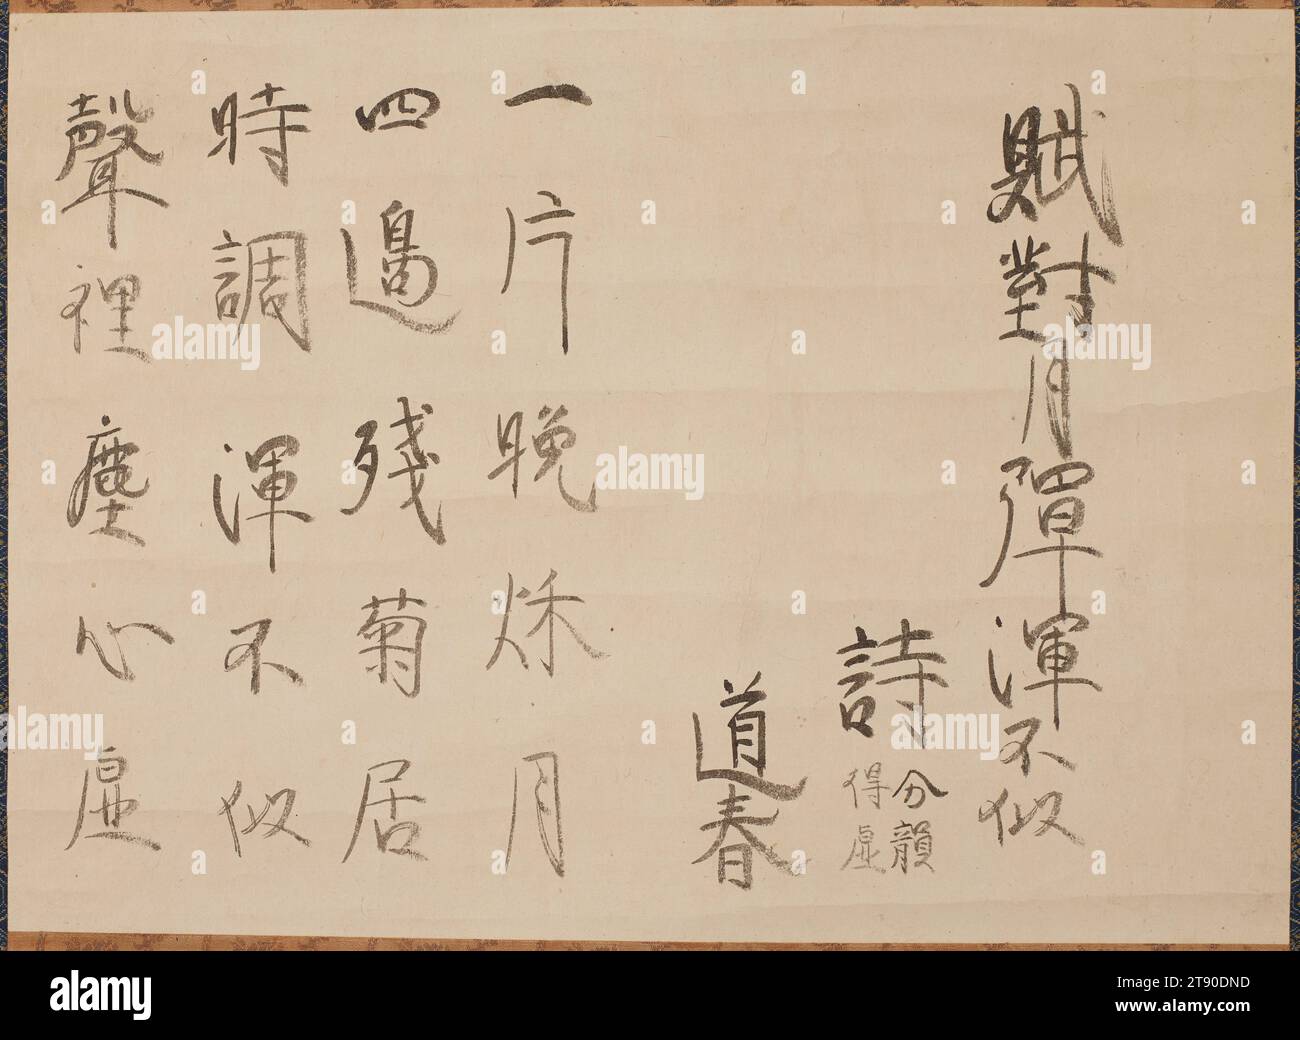 賦對月彈渾不似
詩 分韻
得虛
道春
一片晩秌月
四邊殘菊居
時調渾不似
聲裡塵心虛
alamy
Image ID: 2T90DND
www.alamy.com